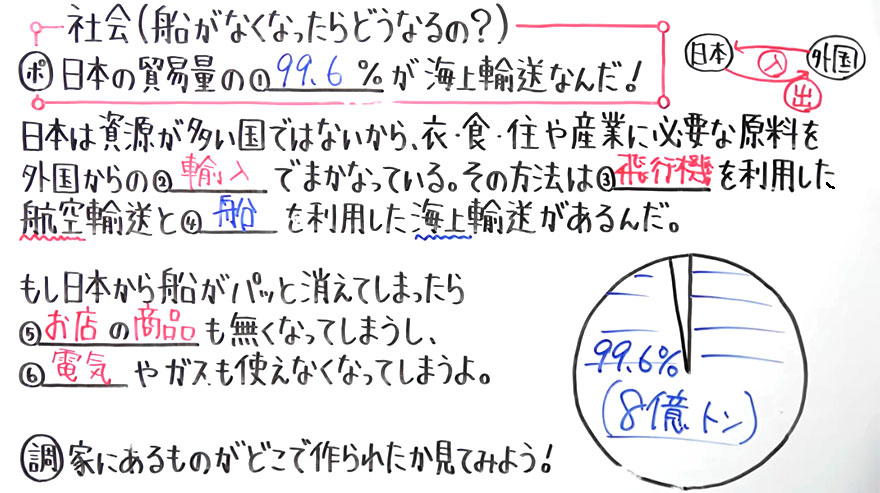 社会(船がなくなったらどうなるの?)
ポ 日本の貿易量の① 99.6 %が海上輸送なんだ!
日本 入 外国
出
日本は資源が多い国ではないから、衣・食・住や産業に必要な原料を
外国からの② 輸入 でまかなっている。その方法は③飛行機を利用した
航空輸送と④ 船 を利用した海上輸送があるんだ。
もし日本から船がパッと消えてしまったら
⑤お店の商品も無くなってしまうし、
⑥ 電気 やガスも使えなくなってしまうよ。
99.6%
(8億トン)
調 家にあるものがどこで作られたか見てみよう!